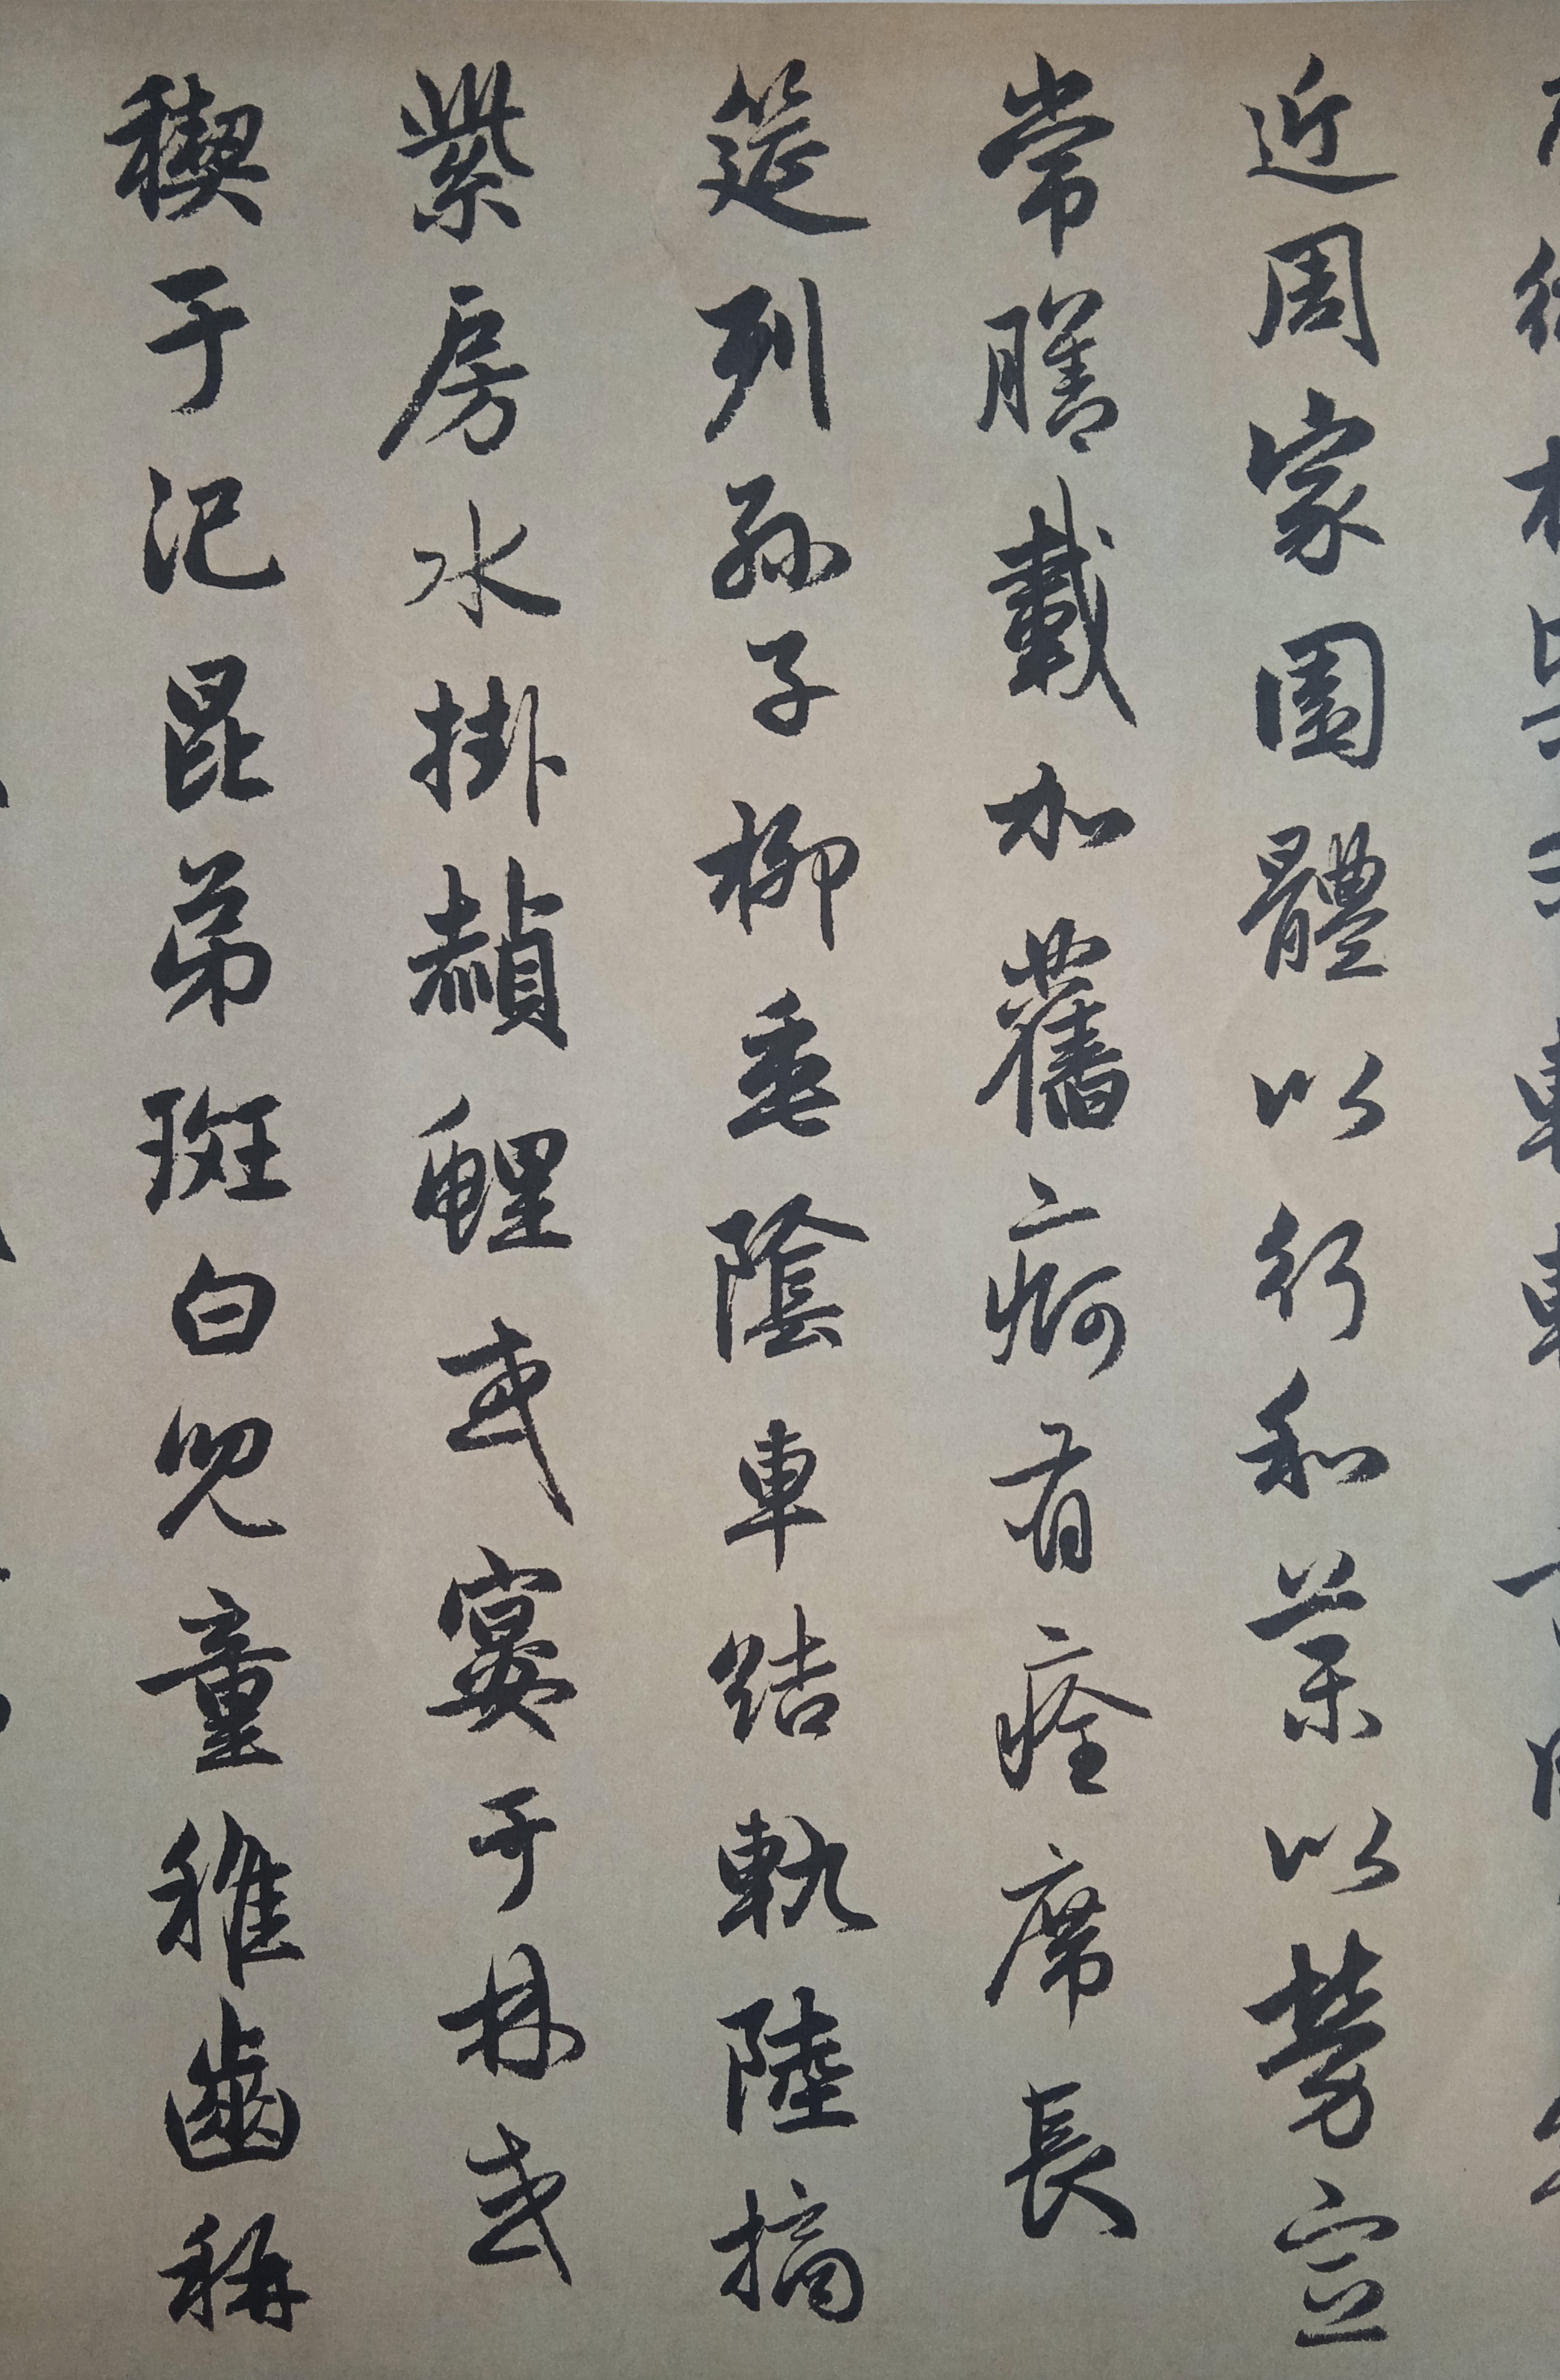 近周家園體以行和藥以勞宣
常膳載加舊痾有痊席長
筵列孫子柳垂陰車結軌陸摘
紫房水掛赬鯉或宴于林或
禊于汜昆弟斑白兒童稚齒稱